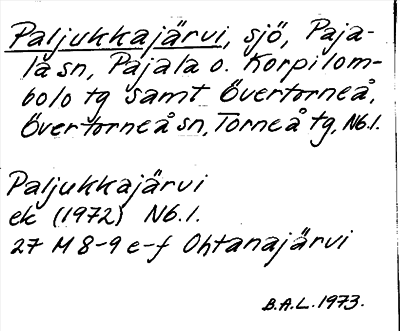 Paljukkajärvi, sjö, Paja-
la sn, Pajala o. Korpilom-
bolo tg samt Övertorneå,
Övertorneå sn, Torneå tg, Nb.l.
Paljukkajärvi
ek (1972) Nb.l.
27 M 8-9 e-f Ohtanajärvi
B.A.L. 1973.